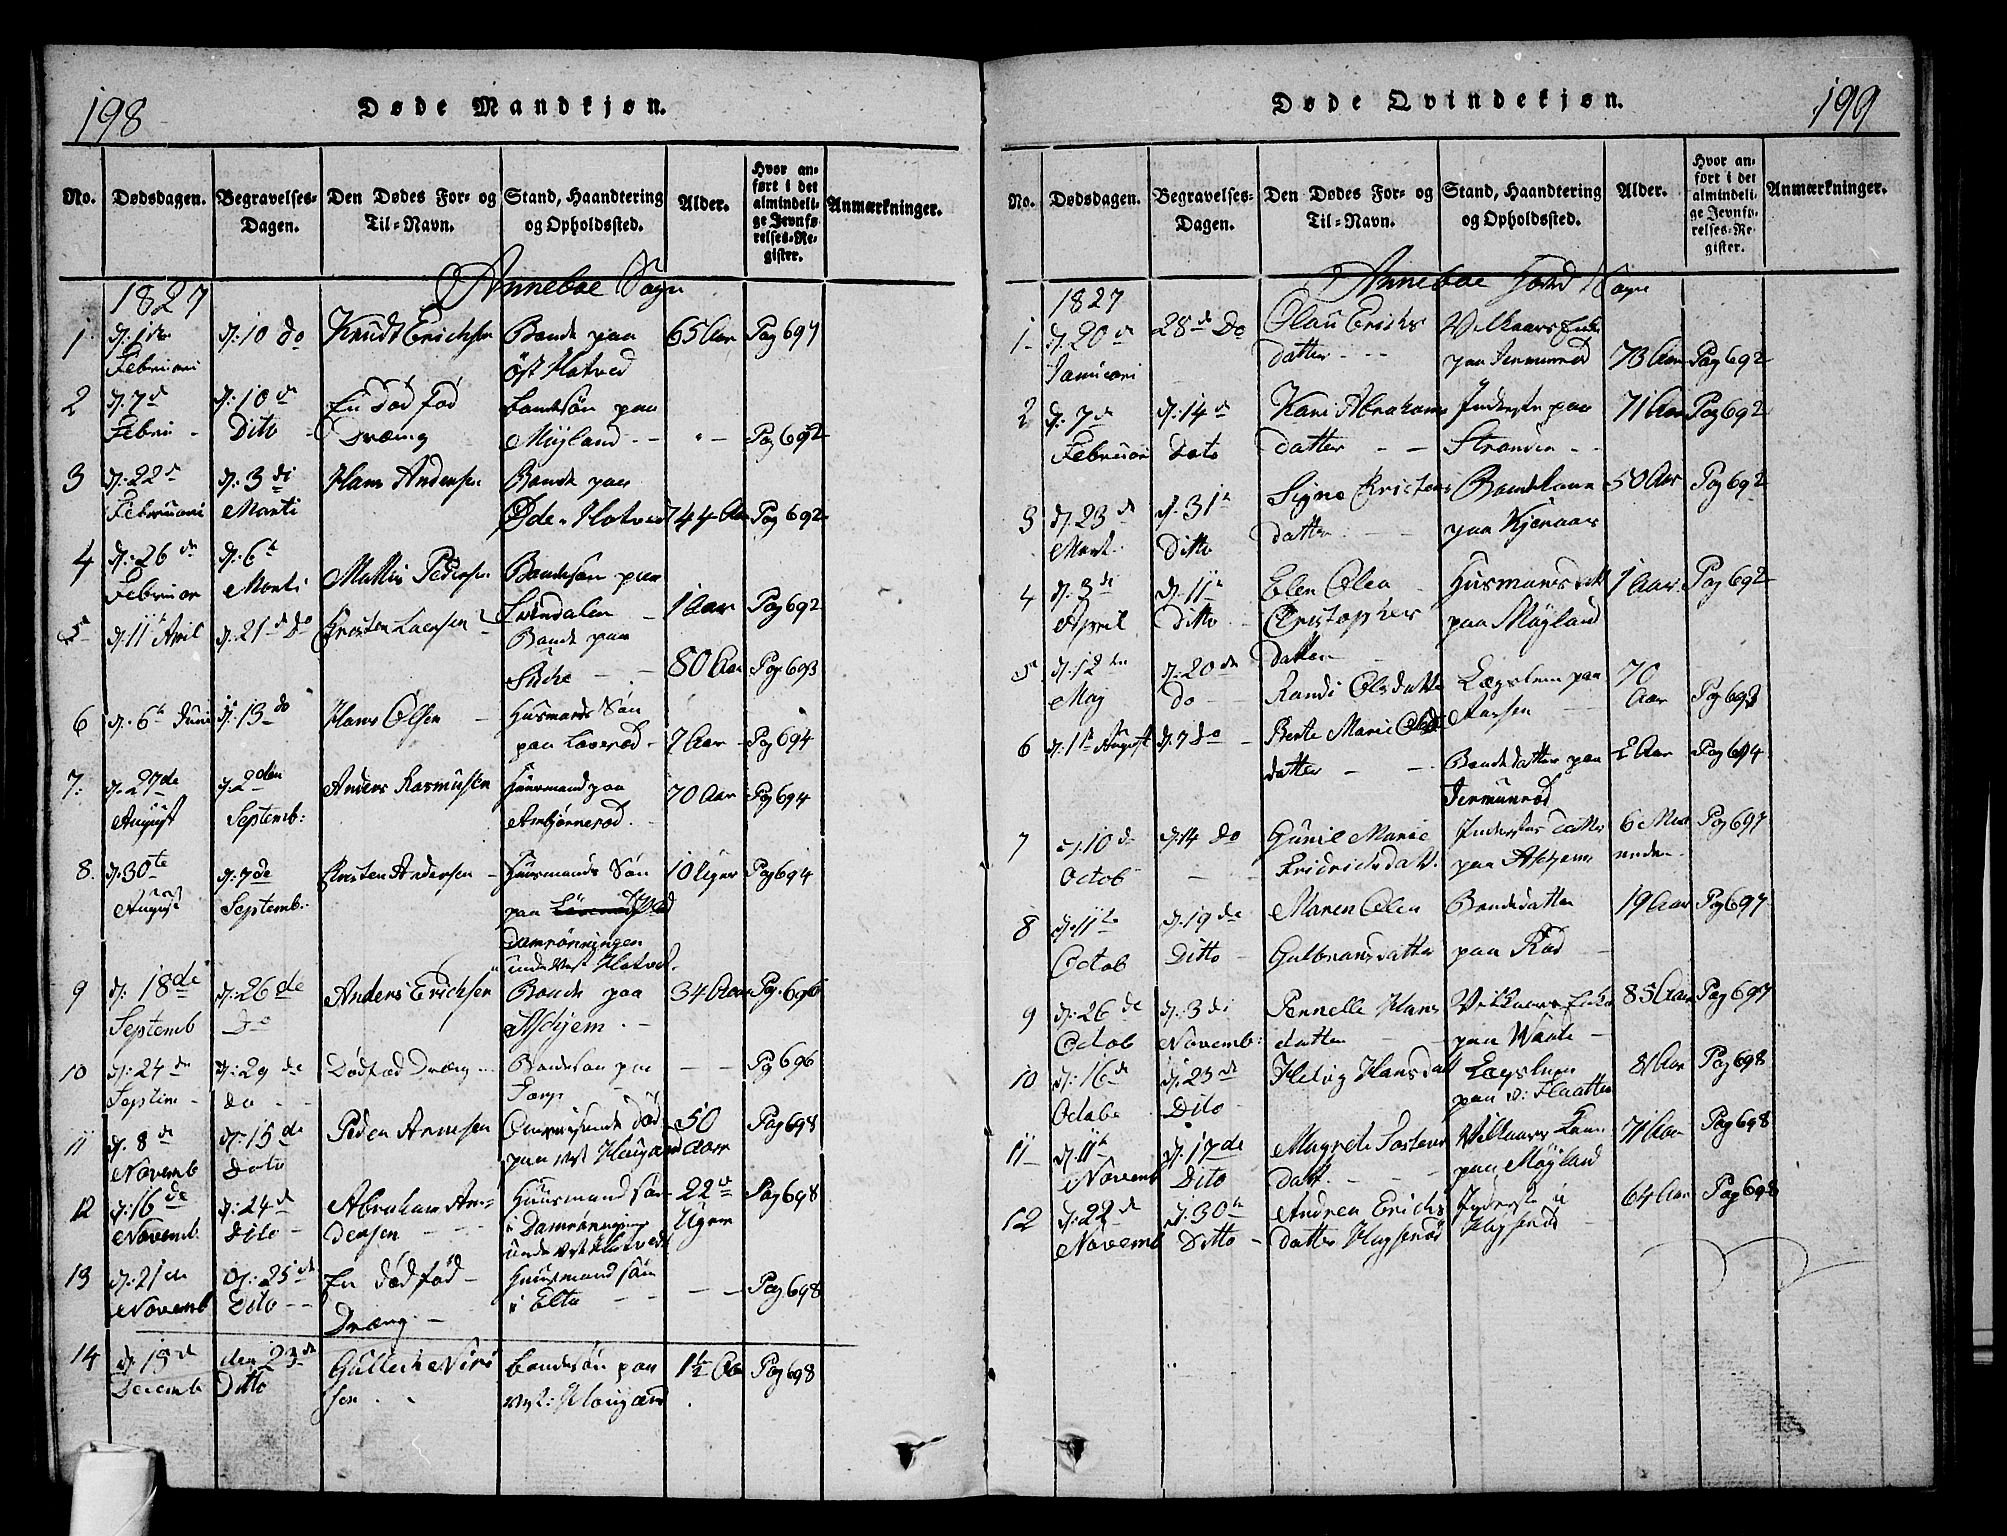 198
Døde Mandkjøn.
No. Dødsdagen. Begravelses-Dagen. Den Dødes For- og Til-Navn. Stand, Haandtering og Opholdssted. Alder. Hvor anført i det almindelige Jevnførelses-Register. Anmærkninger.
Annebae Sogn
1827
1 d: 1te Februari d: 10 do Knudt Erichsen Bonde paa öst Hotved 65 Aar Pag 697
2 d: 7d Febru d: 10d Dito En död föd Dræng bondesön paa Möyland Pag 692
3 d: 22d Februari d: 3di Marti Hans Andersen Bonde paa Øde Hotved 44 Aar Pag 692
4 d: 26de Februar d: 6te Marti Mathis Pedersen Bondesön paa Svindalen 1 Aar Pag 692
5 d: 11te Avril d: 21d do Kristen Larsen Bonde paa 80 Aar Pag 693
6 d: 6te Juni d: 13 do Hans Olsen Husmands Sön paa Loveröd 7 Aar Pag 694
7. d: 27de August d: 2den Septemb: Anders Rasmusen Huusmand paa Ambjørneröd 70 Aar Pag 694
8. d: 30te August d: 7de Septemb: Kristen Andersen Huusmands Sön paa Damrönningen under vest Hotved. 10 Uger Pag 694
9 d: 18de Septemb d: 26de do Anders Erichsen Bonde paa Aschjem 34 Aar Pag. 696
10 d: 24de Septem d: 29de do Dödföd Dræng Bondesön paa Torp Pag 696
11 d: 8de Novemb d: 15de Dato Peder Arnesen paa vest Haugan 50 Aar Pag 698
12 d: 16de Novemb. d: 24d Dito Abraham Andersen Huusmand sön i Damrönningen under vest Hotvedt 22de Uger Pag 698
13 d: 21de Novemb d: 25de Dito En död föd Dræng Huusmand sön i Elto Pag 698
14 d: 15d Decemb den 23de Ditto Gullich Nirisen bondesön paa vest: Hougan 1½ Pag 698
199
Døde Qvindekjøn.
No. Dødsdagen. Begravelses-Dagen. Den Dødes For- og Til-Navn. Stand, Haandtering og Opholdssted. Alder. Hvor anført i det almindelige Jevnførelses-Register. Anmærkninger.
Annebae Sogn
1827
1 d: 20d Januari 28d do Olau Erichs datter Vilkaars Enke paa Jermunröd 73 Aar Pag 692
2 d: 7d Februar d: 14d Dato Kari Abrahams datter Inderste paa Stranden 71 Aar Pag 692
3 d: 23d Mart. d: 31te Ditto Signe Kristens datter Bondekone paa Kjønaas 50 Aar Pag 692
4 d: 3di April d: 11te Ditto Elen Olea Christopher datter Husmandsdat paa Möyland 1 Aar Pag 692
5 d: 12te Maj d: 20de do Randi Olsdatter Lægslem paa Aarsen 70 Aar Pag 693
6 d: 1te August d: 7 do Berte Marie Ols datter Bondedatter paa Jermunröd 2 Aar Pag 694
7 d: 10d Octob d: 14 do Gunil Marie Fridrichsdatt. Inderstes datter paa Aschjem 6 Maaneder Pag 697
8 d: 11te Octob d: 19de Ditto Maren Olea Gulbransdatter Bondedatter paa Röd 19 Aar Pag 697
9 d: 26de Octob d: 3di Novemb: Pernelle Hans datter Vilkaars Enke paa Waale 85 Aar Pag 697
10 d: 16de Octobe d: 23de Dito Helvig Hansdatt Lægslem paa v: Flaatten 81 Aar Pag 698
11 d: 11te Novemb d: 17de Dito Magrete Sostens datt. Vilkaars Kone paa Möyland 71 Aar Pag 698
12 d: 22d Novemb d: 30te Ditto Andrea Erichs datter Haysenröd Inderste i Haysenröd 64 Aar Pag 698